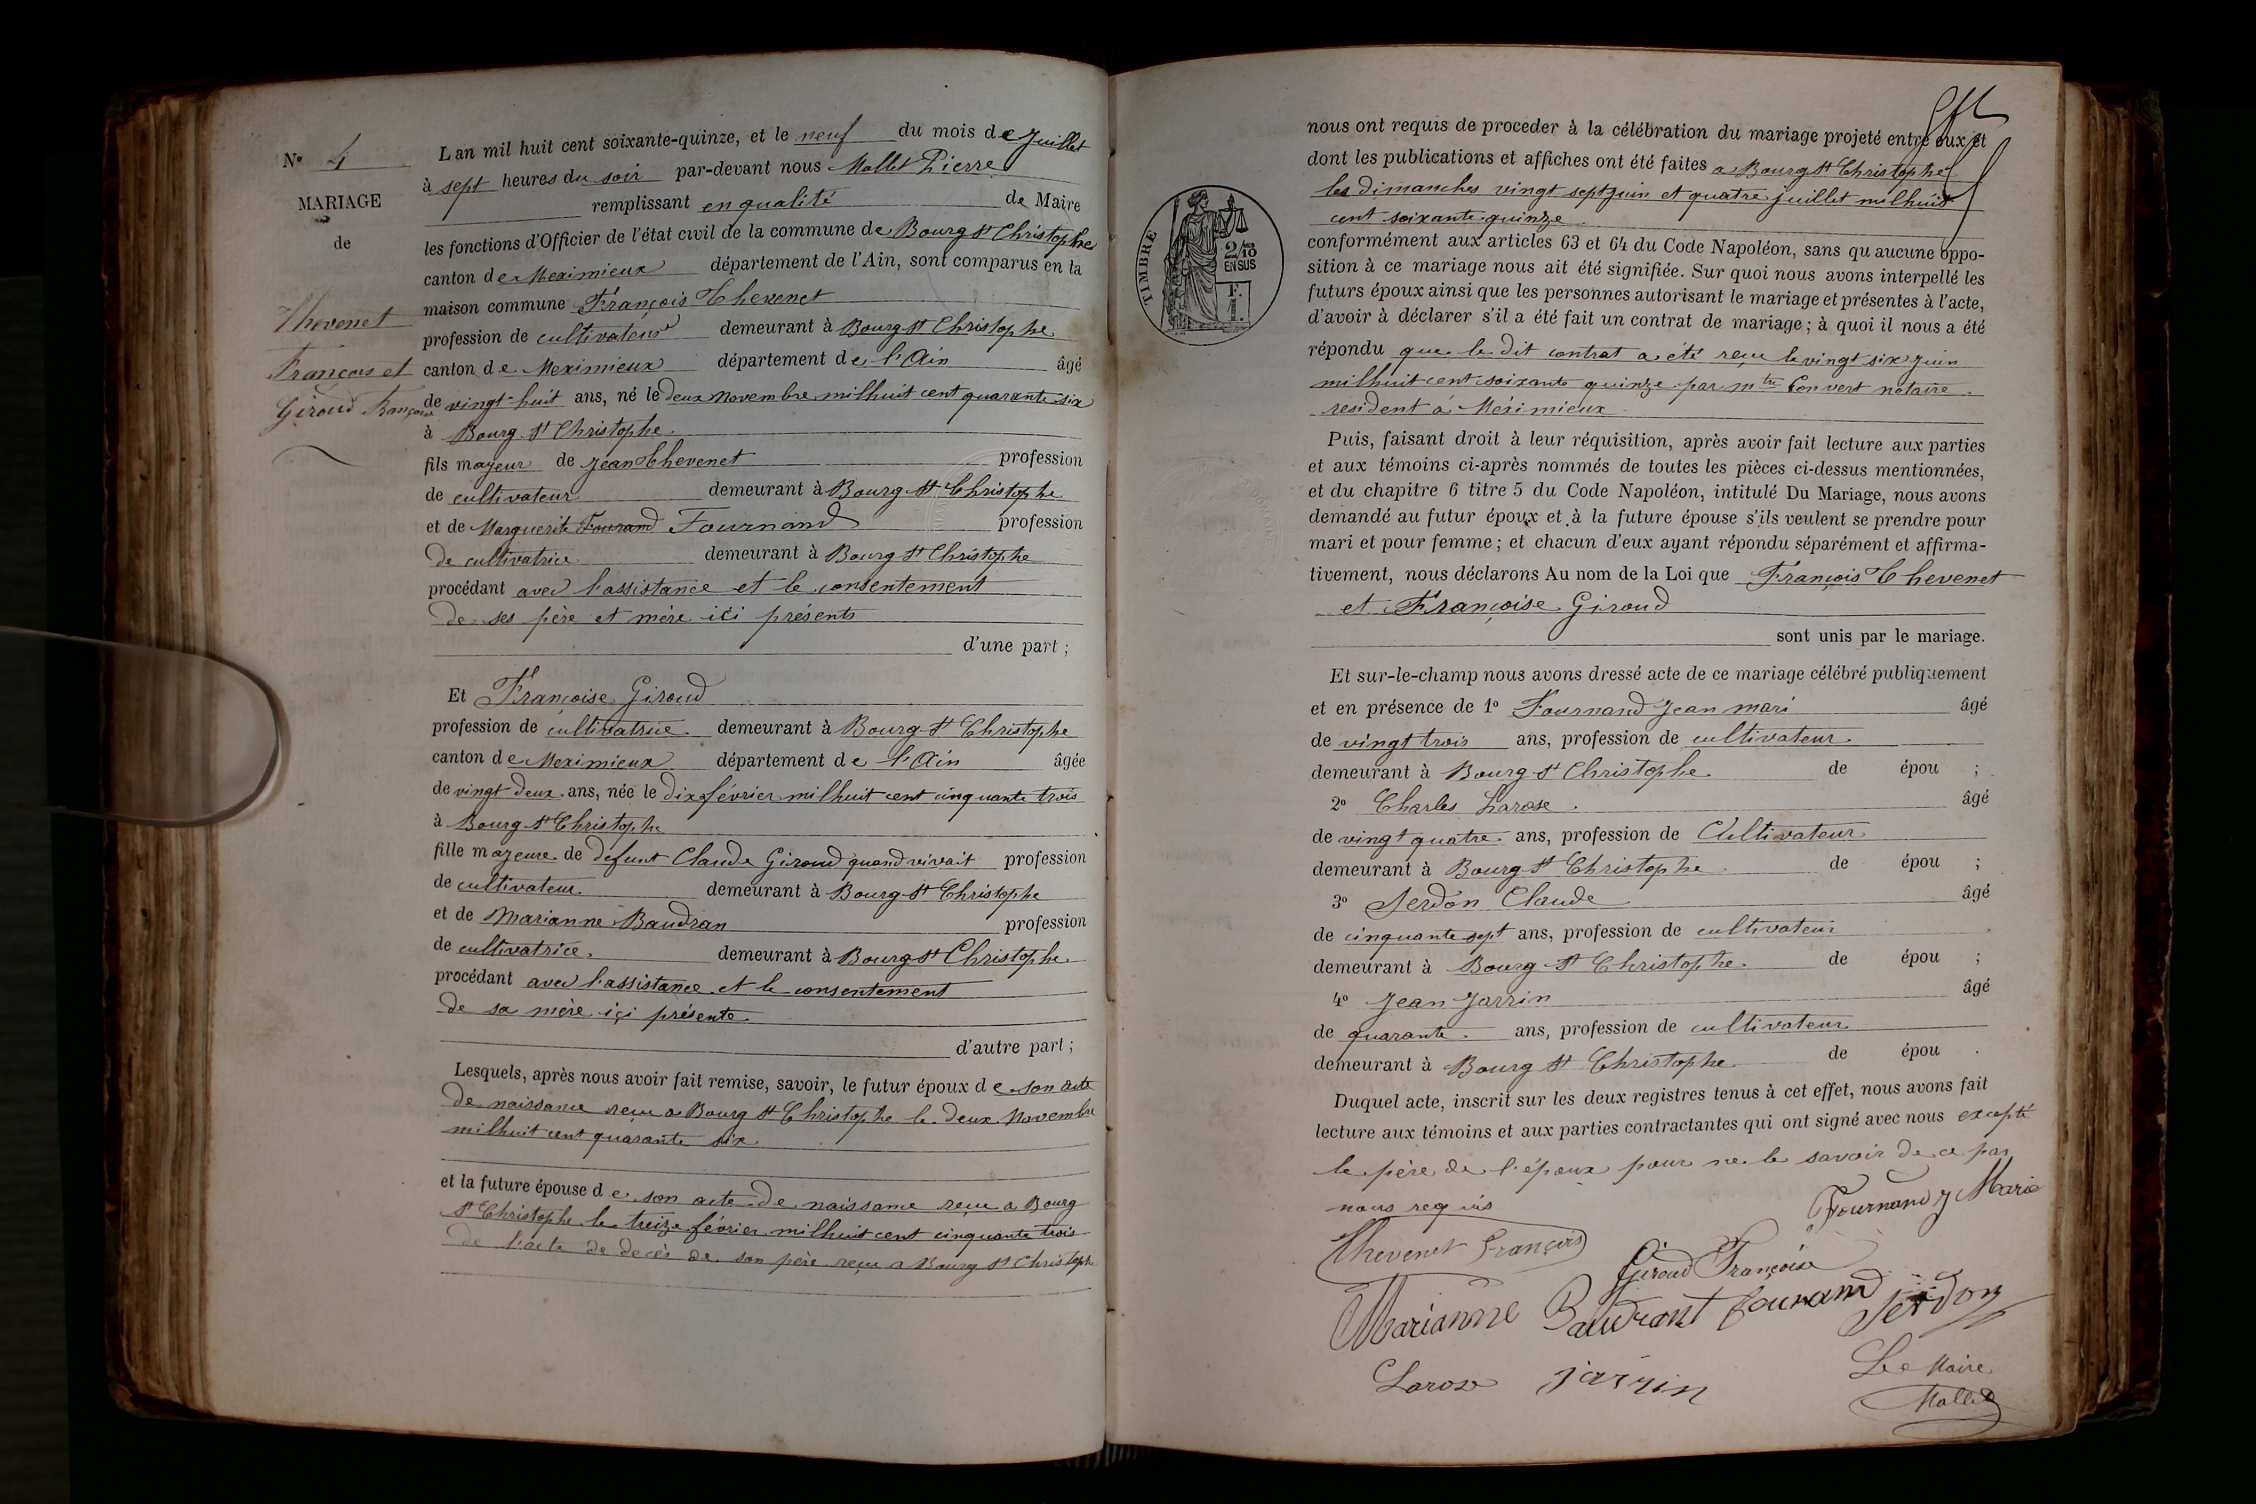 N° 4
MARIAGE
de
Thevenet
François et
Giroud Françoise
L'an mil huit cent soixante-quinze, et le neuf du mois de Juillet
à sept heures du soir par-devant nous Mallet Pierre
remplissant en qualité de Maire
les fonctions d'Officier de l'état civil de la commune de Bourg St Christophe
canton de Meximieux département de l'Ain, sont comparus en la
maison commune François Thevenet
profession de cultivateur demeurant à Bourg St Christophe
canton de Meximieux département de l'Ain âgé
de vingt-huit ans, né le deux Novembre milhuit cent quarante six
à Bourg St Christophe
fils majeur de Jean Thevenet profession
de cultivateur demeurant à Bourg St Christophe
et de Marguerite Fournand Fournand profession
de cultivatrice demeurant à Bourg St Christophe
procédant avec l'assistance et le consentement
de ses père et mère ici présents
d'une part ;
Et Françoise Giroud
profession de cultivatrice demeurant à Bourg St Christophe
canton de Meximieux département de l'Ain âgée
de vingt deux ans, née le dix février milhuit cent cinquante trois
à Bourg St Christophe
fille majeure de defunt Claude Giroud quand vivait profession
de cultivateur demeurant à Bourg St Christophe
et de Marianne Baudran profession
de cultivatrice demeurant à Bourg St Christophe
procédant avec l'assistance et le consentement
de sa mère içi présente
d'autre part ;
Lesquels, après nous avoir fait remise, savoir, le futur époux de son acte
de naissance reçu a Bourg St Christophe le deux Novembre
milhuit cent quarante six
et la future épouse de son acte de naissance reçu a Bourg
St Christophe le treize février milhuit cent cinquante trois
de l'acte de decès de son père reçu a Bourg St Christophe
TIMBRE
2/10
EN SUS
F.
1.
nous ont requis de proceder à la célébration du mariage projeté entre eux et
dont les publications et affiches ont été faites a Bourg St Christophe
les dimanches vingt sept juin et quatre juillet milhuit
cent soixante quinze
conformément aux articles 63 et 64 du Code Napoléon, sans qu'aucune oppo-
sition à ce mariage nous ait été signifiée. Sur quoi nous avons interpellé les
futurs époux ainsi que les personnes autorisant le mariage et présentes à l'acte,
d'avoir à déclarer s'il a été fait un contrat de mariage ; à quoi il nous a été
répondu que le dit contrat a été reçu le vingt six juin
milhuit cent soixante quinze par mtre Convert notaire
resident à Méximieux
Puis, faisant droit à leur réquisition, après avoir fait lecture aux parties
et aux témoins ci-après nommés de toutes les pièces ci-dessus mentionnées,
et du chapitre 6 titre 5 du Code Napoléon, intitulé Du Mariage, nous avons
demandé au futur époux et à la future épouse s'ils veulent se prendre pour
mari et pour femme ; et chacun d'eux ayant répondu séparément et affirma-
tivement, nous déclarons Au nom de la Loi que François Thevenet
et Françoise Giroud
sont unis par le mariage.
Et sur-le-champ nous avons dressé acte de ce mariage célébré publiquement
et en présence de 1° Fournand Jean mari âgé
de vingt trois ans, profession de cultivateur
demeurant à Bourg St Christophe de épou ;
2° Charles Larose âgé
de vingt quatre ans, profession de Cultivateur
demeurant à Bourg St Christophe de épou ;
3° Serdon Claude âgé
de cinquante sept ans, profession de cultivateur
demeurant à Bourg St Christophe de épou ;
4° Jean Jarrin âgé
de quarante ans, profession de cultivateur
demeurant à Bourg St Christophe de épou .
Duquel acte, inscrit sur les deux registres tenus à cet effet, nous avons fait
lecture aux témoins et aux parties contractantes qui ont signé avec nous excepté
le père de l'époux pour ne le savoir de ce par
nous requis
Fournand J Marie
Thevenet François
Giroud Françoise
Marianne Baudrant Fournand Serdon
Larose Jarrin
Le Maire
Mallet